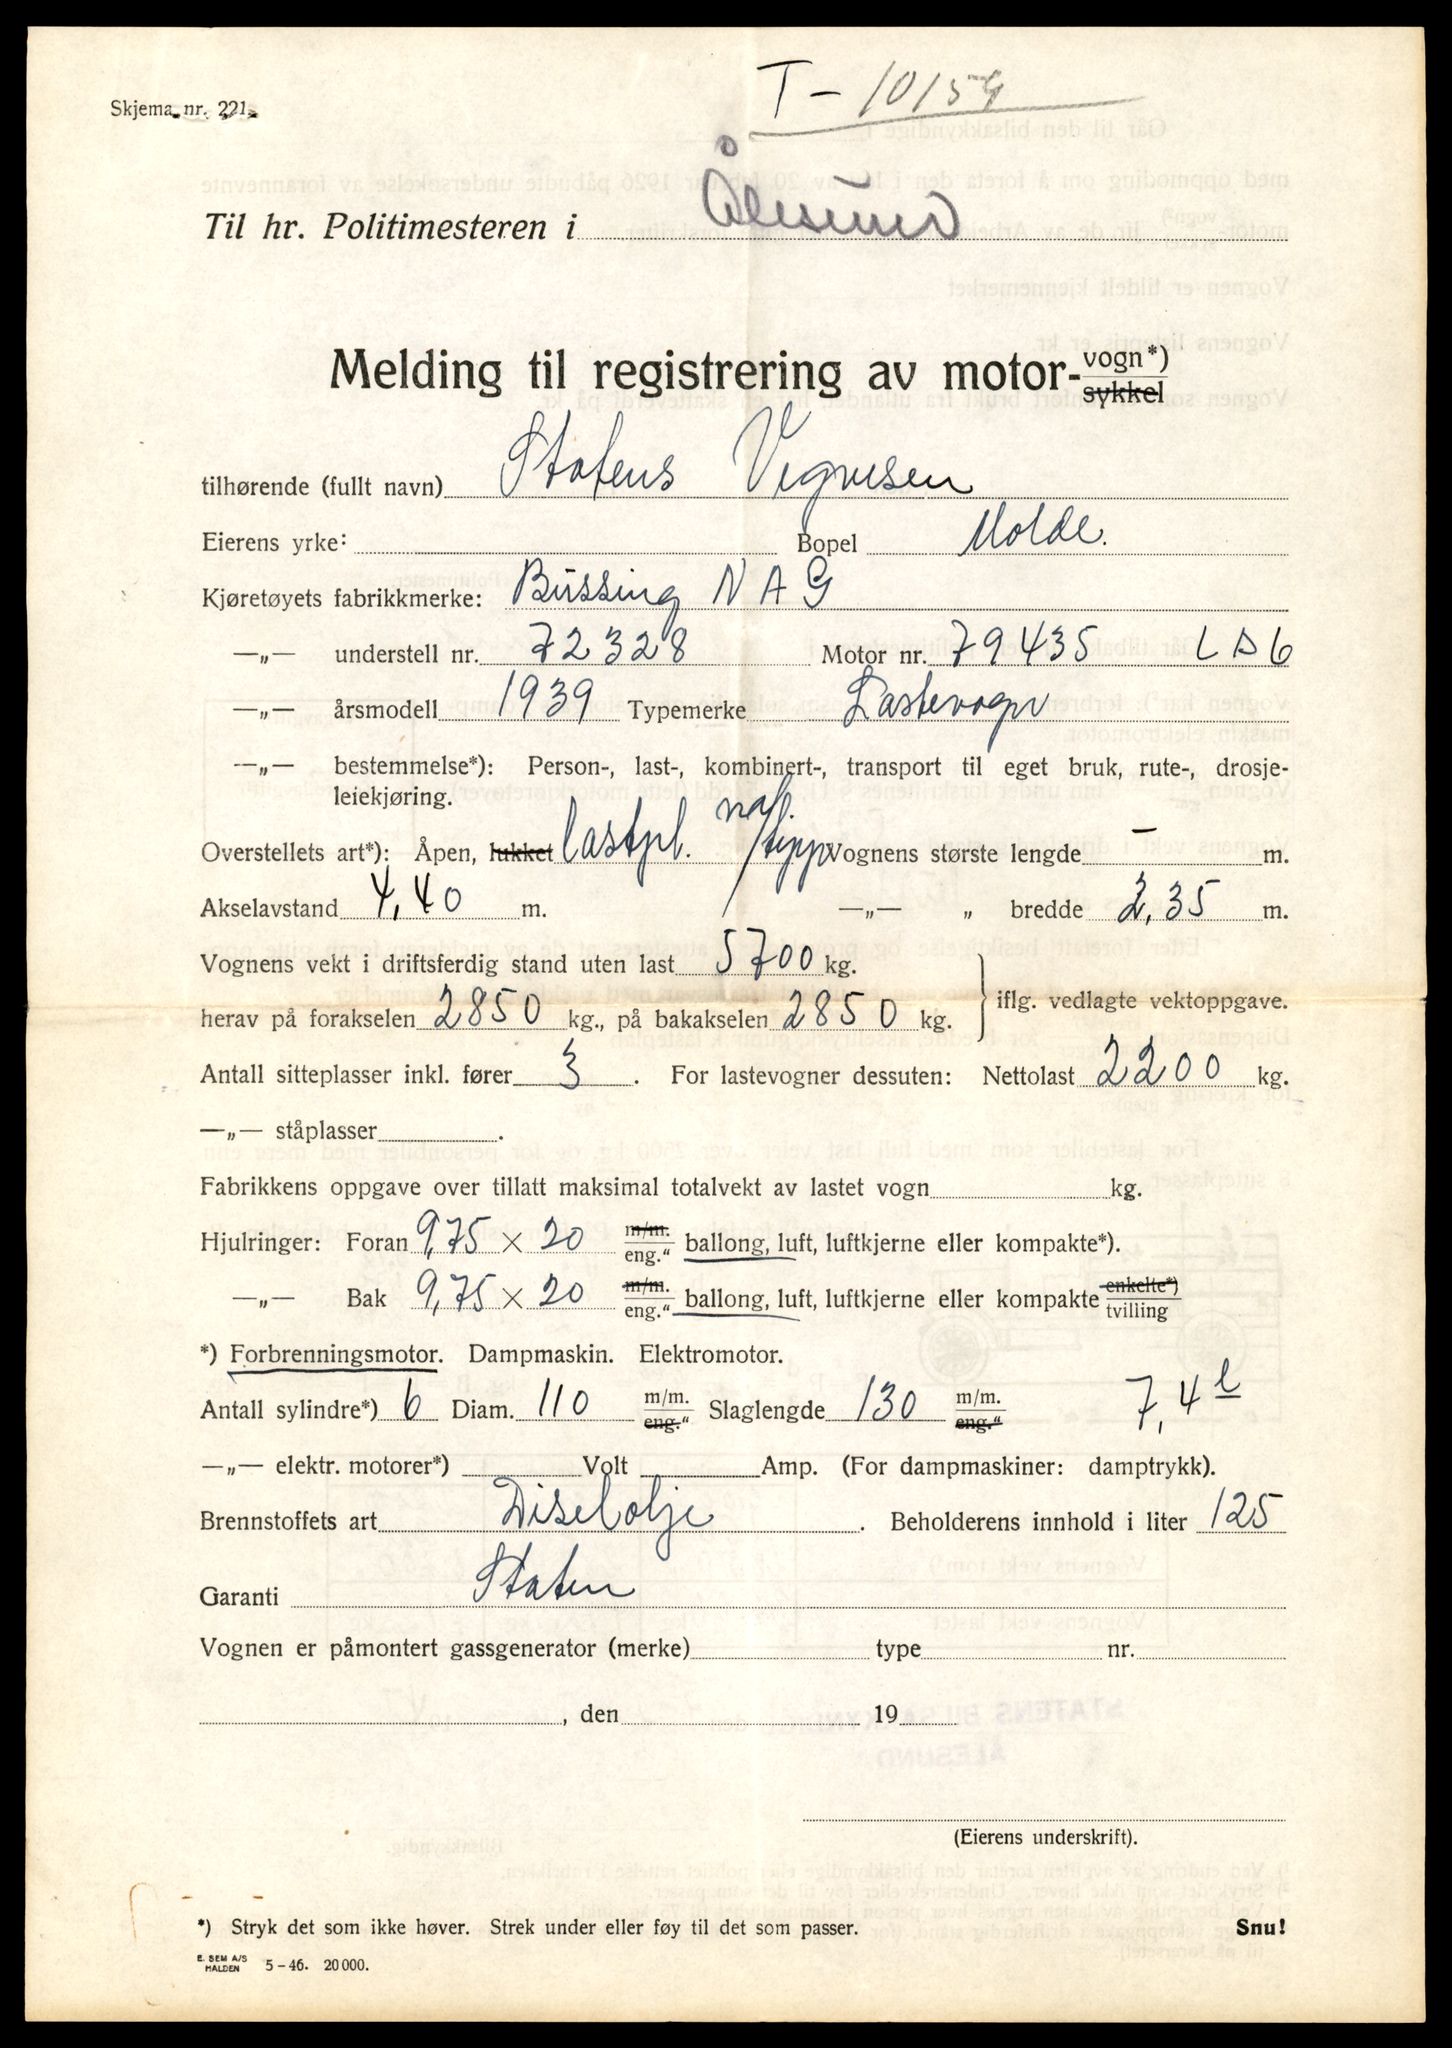 T - 10159
Skjema nr. 221.
Til hr. Politimesteren i Ålesund
Melding til registrering av motor-vogn*) sykkel
tilhørende (fullt navn) Statens Vegvesen
Eierens yrke: Bopel Molde.
Kjøretøyets fabrikkmerke: Büssing N A G
—„— understell nr. 72328 Motor nr. 79435 L D 6
—„— årsmodell 1939 Typemerke Lastevogn
—„— bestemmelse*): Person-, last-, kombinert-, transport til eget bruk, rute-, drosje-
leiekjøring.
Overstellets art*): Åpen, lukket lastpl. m/tipp Vognens største lengde — m.
Akselavstand 4,40 m. —„— „ bredde 2,35 m.
Vognens vekt i driftsferdig stand uten last 5700 kg.
herav på forakselen 2850 kg., på bakakselen 2850 kg. iflg. vedlagte vektoppgave.
Antall sitteplasser inkl. fører 3. For lastevogner dessuten: Nettolast 2200 kg.
—„— ståplasser .
Fabrikkens oppgave over tillatt maksimal totalvekt av lastet vogn kg.
Hjulringer: Foran 9,75 × 20 m/m. eng." ballong, luft, luftkjerne eller kompakte*).
—„— Bak 9,75 × 20 m/m. eng." ballong, luft, luftkjerne eller kompakte enkelte*) tvilling
*) Forbrenningsmotor. Dampmaskin. Elektromotor.
Antall sylindre*) 6 Diam. 110 m/m. eng." Slaglengde 130 m/m. eng." 7,4 l
—„— elektr. motorer*) Volt Amp. (For dampmaskiner: damptrykk).
Brennstoffets art Diselolje . Beholderens innhold i liter 125
Garanti Staten
Vognen er påmontert gassgenerator (merke) type nr.
, den 19
(Eierens underskrift).
*) Stryk det som ikke høver. Strek under eller føy til det som passer. Snu!
E. SEM A/S HALDEN 5-46. 20 000.